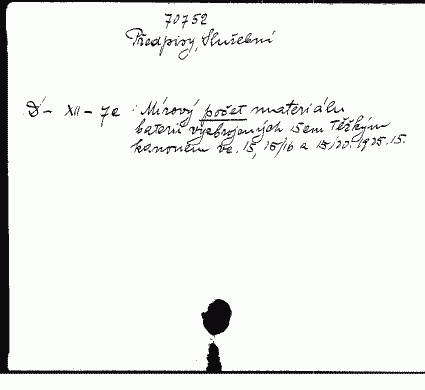 70752
Předpisy, Služební
D - XII - 7e : Mírový počet materiálu
baterií vyzbrojených 15cm Těžkým
kanonem vz. 15, 15/16 a 15/20. 1925. 15.